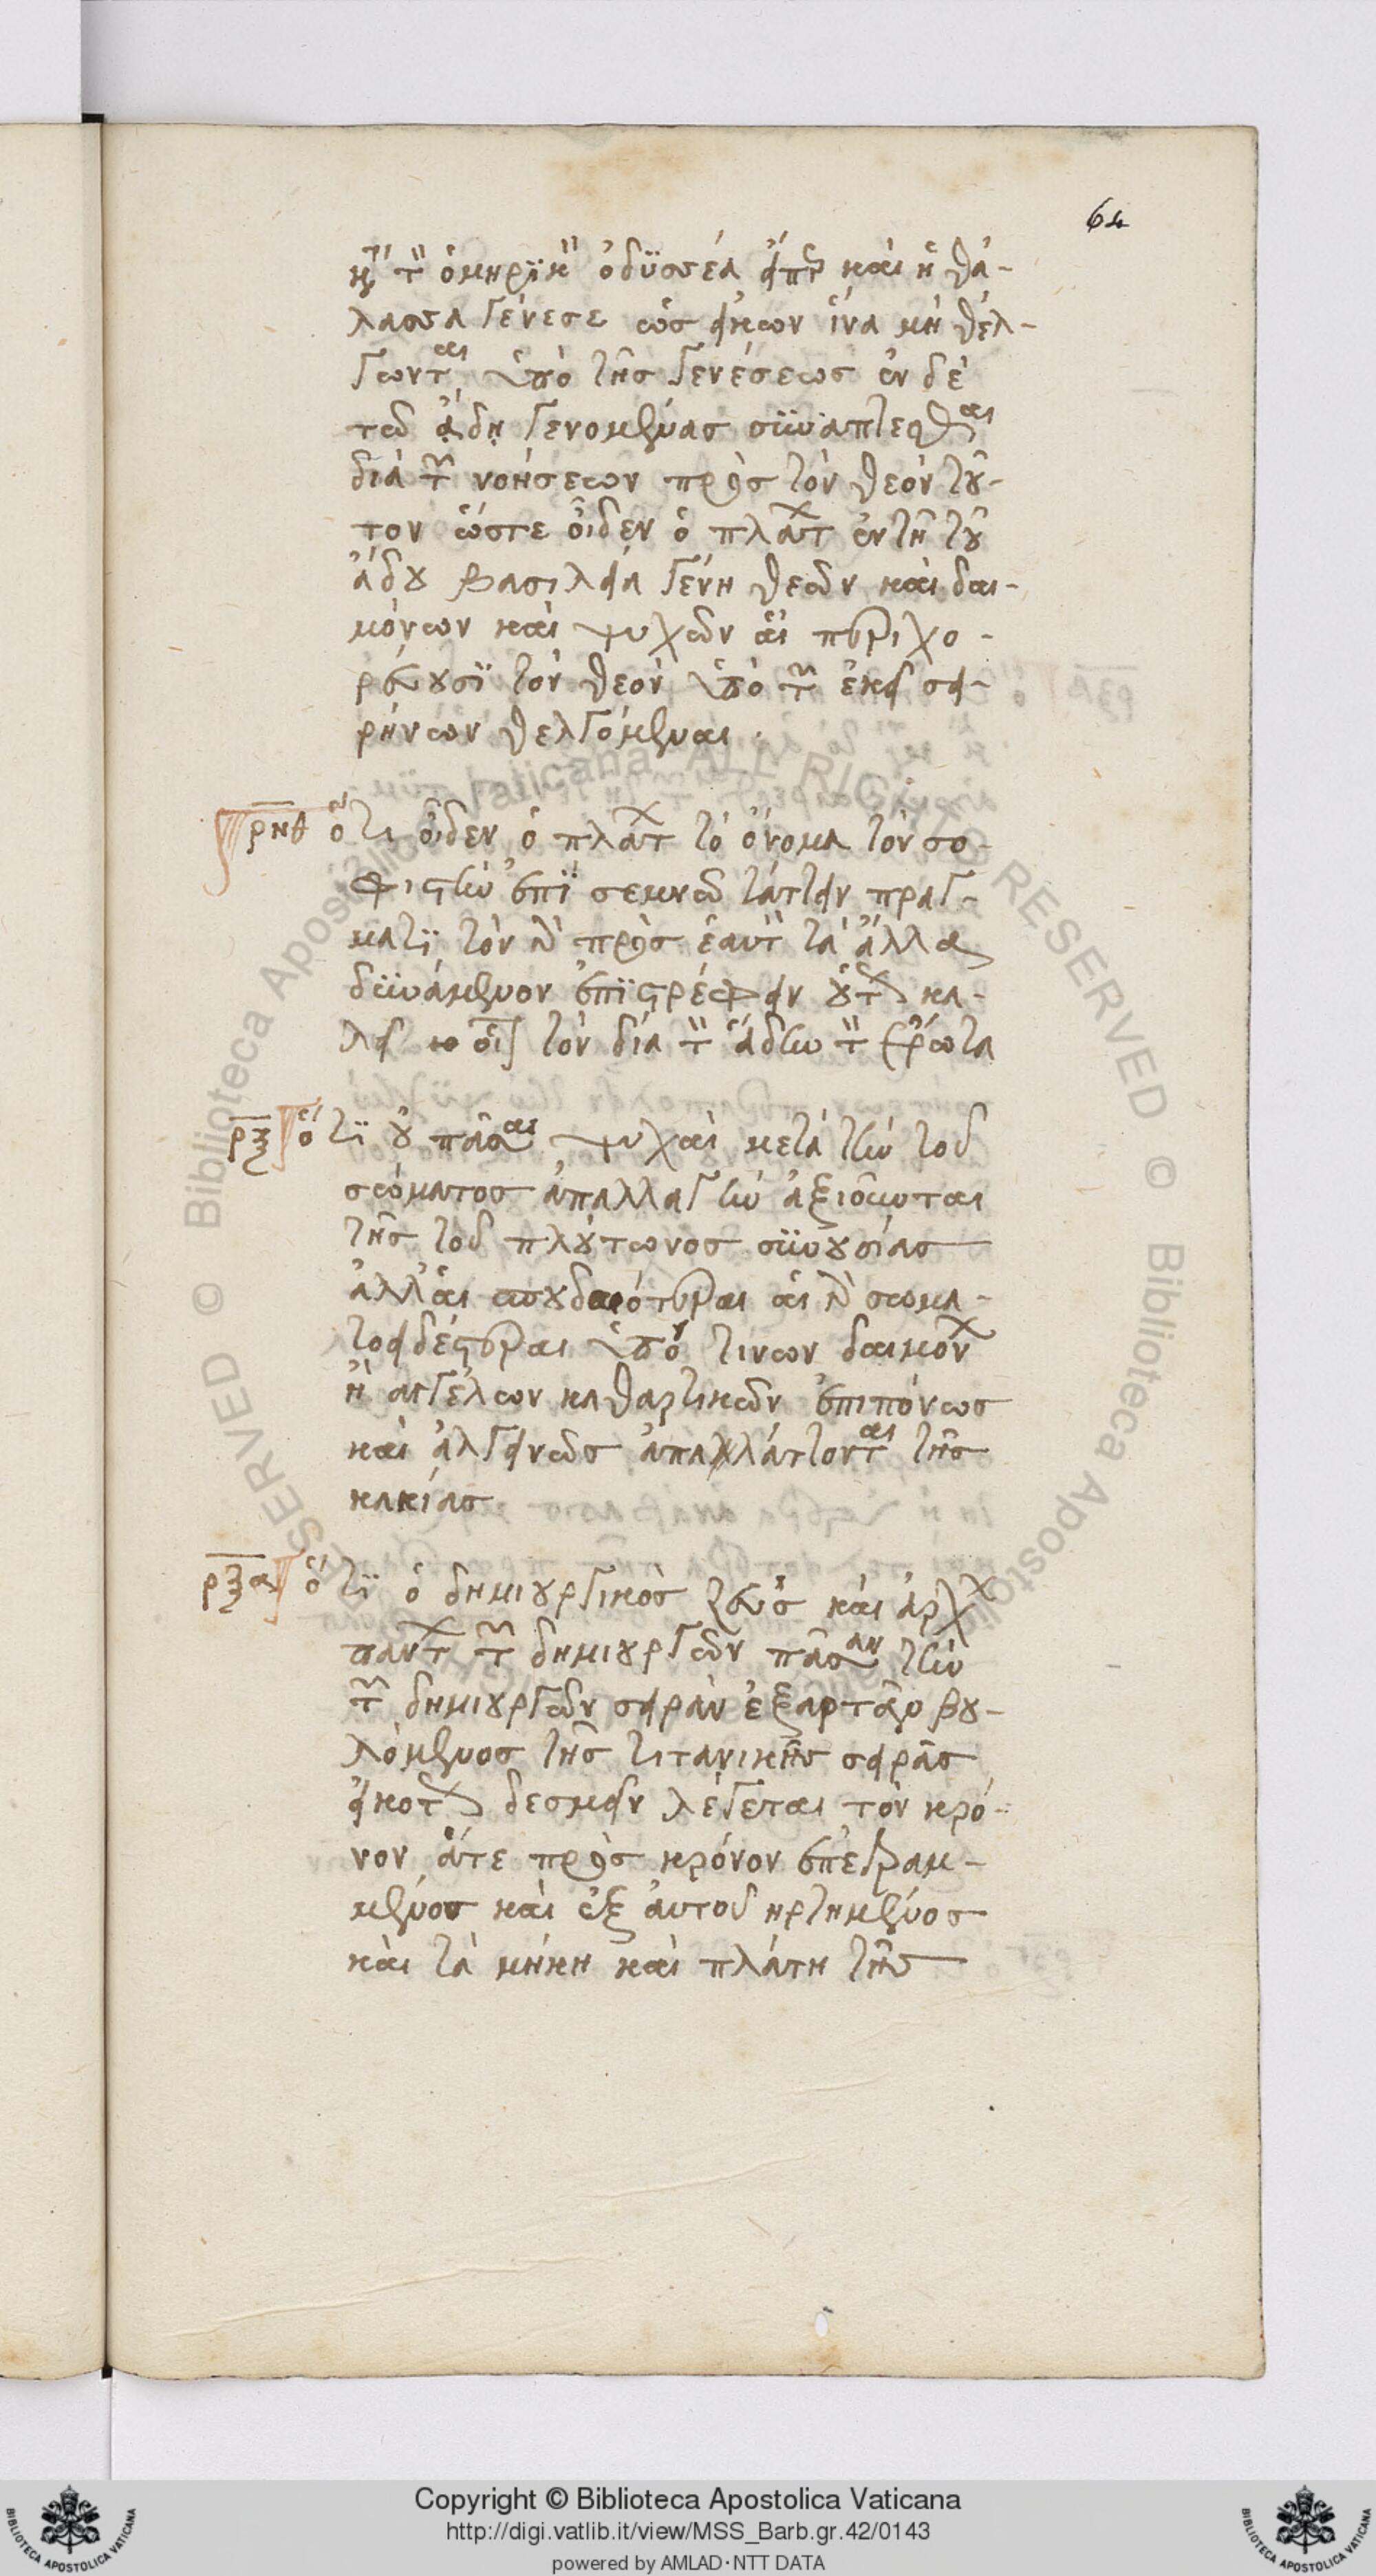 64
κατὰ τὸν ὁμηρικὸν ὀδυσσέα εἴπερ καὶ ἡ θά-
λασσα γένεσε ως εἰκων ἵνα μὴ θέλ-
γωνται ὑπὸ τῆς γενέσεως ἐν δὲ
τῶ ἅδη γενομένας συνάπτεσθαι
διὰ τῶν νοήσεων πρὸς τὸν θεὸν τοῦ-
τον ὥστε οἶδεν ὁ πλάτων ἐν τῆ τοῦ
ἅδου βασιλεία γένη θεῶν καὶ δαι-
μόνων καὶ ψυχῶν αἳ περιχο-
ρεύουσι τὸν θεὸν ὑπὸ τῶν ἐκεῖ σει-
ρήνων θελγόμεναι.
ρνθ ὅτι οἶδεν ὁ πλάτων τὸ ὄνομα τὸν σο-
φιστὴν ἐπὶ σεμνῶ τάττειν πράγ-
ματι τὸν γὰρ πρὸς ἑαυτὸν τὰ ἄλλα
δυνάμενον ἐπιστρέφειν οὕτως κα-
λεῖ τὸν δία τὸν ἅδην τὸν ἔρωτα
ρξ ὅτι οὐ πᾶσαι ψυχαὶ μετὰ τὴν τοῦ
σώματος ἀπαλλαγὴν ἀξιοῦνται
τῆς τοῦ πλούτωνος συνουσίας
ἀλλ' αἱ σπουδαιότεραι αἱ γὰρ σωμα-
τοειδέστεραι ὑπό τινων δαιμόνων
ἢ ἀγγέλων καθαρτικῶν ἐπιπόνως
καὶ ἀλγεινῶς ἀπαλλάττονται τῆς
κακίας
ρξα ὅτι ὁ δημιουργικὸς ζεὺς καὶ ἀρχὴ
πάντων τῶν δημιουργῶν πᾶσαν τὴν
τῶν δημιουργῶν σειρὰν ἐξαρτᾶν βου-
λόμενος τῆς τιτανικῆς σειρᾶς
εἰκότως δεσμεῖν λέγεται τὸν κρό-
νον ἅτε πρὸς κρόνον ἐπεστραμ-
μένος καὶ ἐξ αὐτοῦ ἠρτημένος
καὶ τὰ μήκη καὶ πλάτη τῆς
Copyright © Biblioteca Apostolica Vaticana
http://digi.vatlib.it/view/MSS_Barb.gr.42/0143
powered by AMLAD·NTT DATA